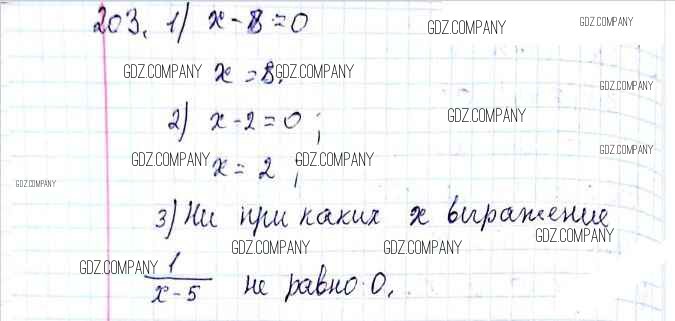 203. 1) x - 8 = 0
GDZ.COMPANY
GDZ.COMPANY
GDZ.COMPANY x = 8; GDZ.COMPANY
GDZ.COMPANY
2) x - 2 = 0;
GDZ.COMPANY
GDZ.COMPANY x = 2; GDZ.COMPANY
GDZ.COMPANY
GDZ.COMPANY
3) Ни при каких x выражение
GDZ.COMPANY
GDZ.COMPANY GDZ.COMPANY
GDZ.COMPANY
1/(x - 5) не равно 0.
GDZ.COMPANY
GDZ.COMPANY